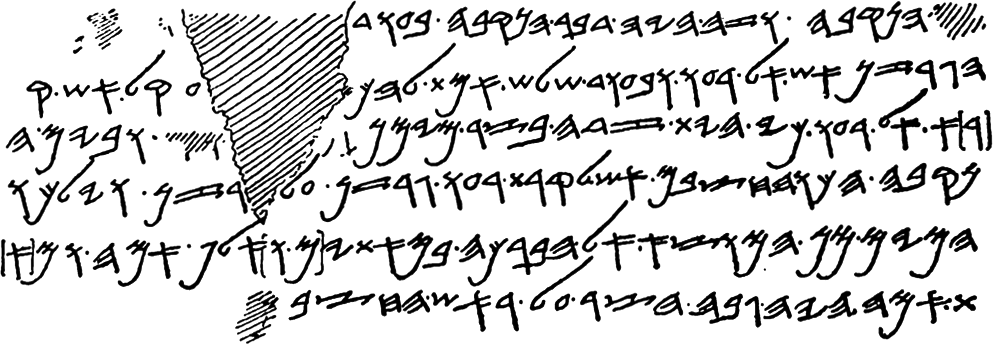 𐤄𐤍𐤒𐤁𐤄 . 𐤅𐤆𐤄 . 𐤄𐤉𐤄 . 𐤃𐤁𐤓 . 𐤄𐤍𐤒𐤁𐤄 . 𐤁𐤏𐤅𐤃
𐤄𐤂𐤓𐤆𐤍 . 𐤀𐤔 . 𐤀𐤋 . 𐤓𐤏𐤅 . 𐤅𐤁𐤏𐤅𐤃 . 𐤔𐤋𐤔 . 𐤀𐤌𐤕 . 𐤋𐤄𐤍 𐤏 𐤒𐤋 . 𐤀𐤔 . 𐤒
[𐤓]𐤀 . 𐤀𐤋 . 𐤓𐤏𐤅 . 𐤊𐤉 . 𐤄𐤉𐤕 . 𐤆𐤃𐤄 . 𐤁𐤑𐤓 . 𐤌𐤉𐤌𐤍 𐤅𐤁𐤉𐤌 . 𐤄
𐤍𐤒𐤁𐤄 . 𐤄𐤊𐤅 . 𐤄𐤇𐤑𐤁𐤌 . 𐤀𐤔 . 𐤋𐤒𐤓𐤕 . 𐤓𐤏𐤅 . 𐤂𐤓𐤆𐤍 . 𐤏𐤋 . 𐤂𐤓𐤆𐤍 . 𐤅𐤉𐤋𐤊𐤅
𐤄𐤌𐤉𐤌 . 𐤌𐤍 . 𐤄𐤌𐤅𐤑𐤀 . 𐤀𐤋 . 𐤄𐤁𐤓𐤊𐤄 . 𐤁𐤌𐤀𐤕𐤉[𐤌 . 𐤅]𐤀𐤋𐤐 . 𐤀𐤌𐤄 . 𐤅𐤌[𐤀]
𐤕 . 𐤀𐤌𐤄 . 𐤄𐤉𐤄 . 𐤂𐤁𐤄 . 𐤄𐤑𐤓 . 𐤏𐤋 . 𐤓𐤀𐤔 . 𐤄𐤇𐤑𐤁